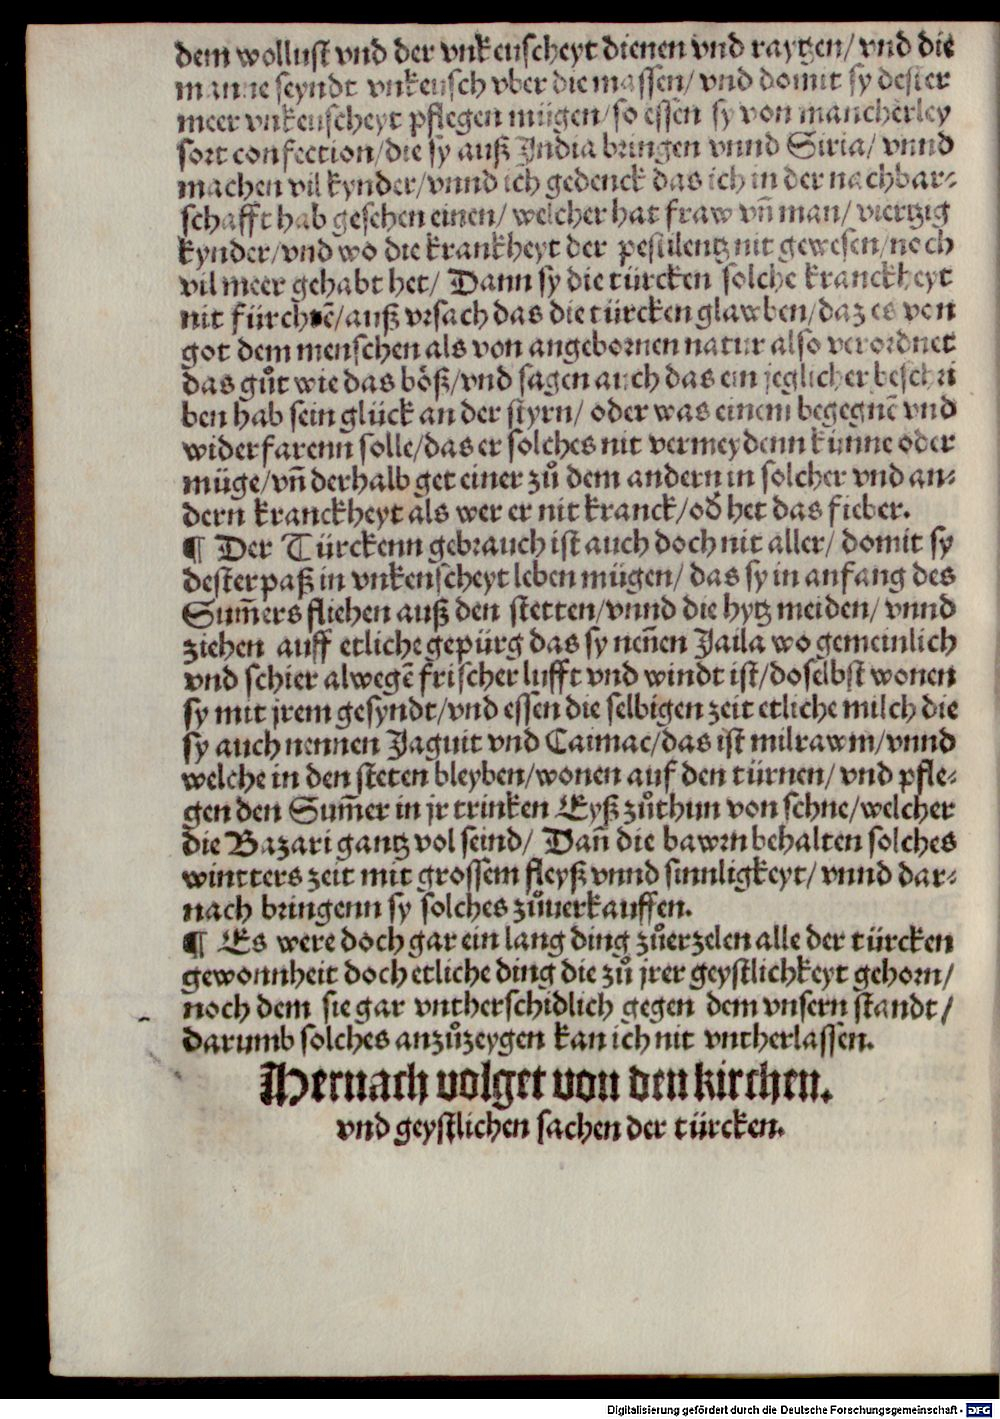 dem wollust vnd der vnkeuscheyt dienen vnd raytzen/ vnd die
manne seyndt vnkeusch vber die massen/ vnd domit sy dester
meer vnkeuscheyt pflegen mügen/ so essen sy von mancherley
sort confection/ die sy auß India bringen vnnd Siria/ vnnd
machen vil kynder/ vnnd ich gedenck das ich in der nachbar⸗
schafft hab gesehen einen/ welcher hat fraw vñ man/ viertzig
kynder/ vnd wo die krankheyt der pestilentz nit gewesen/ noch
vil meer gehabt het/ Dann sy die türcken solche kranckheyt
nit fürchtē/ auß vrsach das die türcken glawben/ daz es von
got dem menschen als von angebornen natur also verordnet
das gůt wie das böß/ vnd sagen auch das ein jeglicher beschri
ben hab sein glück an der styrn/ oder was einem begegnē vnd
widerfarenn solle/ das er solches nit vermeydenn künne oder
müge/ vñ derhalb get einer zů dem andern in solcher vnd an⸗
dern kranckheyt als wer er nit kranck/ od̕ het das fieber.
¶ Der Türckenn gebrauch ist auch doch nit aller/ domit sy
dester paß in vnkeuscheyt leben mügen/ das sy in anfang des
Sum̄ers fliehen auß den stetten/ vnnd die hytz meiden/ vnnd
ziehen auff etliche gepürg das sy nen̄en Jaila wo gemeinlich
vnd schier alwegē frischer lufft vnd windt ist/ doselbst wonen
sy mit jrem gesyndt/ vnd essen die selbigen zeit etliche milch die
sy auch nennen Jaguit vnd Caimac/ das ist milrawm/ vnnd
welche in den steten bleyben/ wonen auf den türnen/ vnd pfle⸗
gen den Sum̄er in jr trinken Eyß zůthun von schne/ welcher
die Bazari gantz vol seind/ Dañ die bawrn behalten solches
wintters zeit mit grossem fleyß vnnd sinnligkeyt/ vnnd dar⸗
nach bringenn sy solches zůuerkauffen.
¶ Es were doch gar ein lang ding zůerzelen alle der türcken
gewonnheit doch etliche ding die zů jrer geystlichkeyt gehorn/
noch dem sie gar vntherschidlich gegen dem vnsern standt/
darumb solches anzůzeygen kan ich nit vntherlassen.
Hernach volget von den kirchen.
vnd geystlichen sachen der türcken.
Digitalisierung gefördert durch die Deutsche Forschungsgemeinschaft - DFG